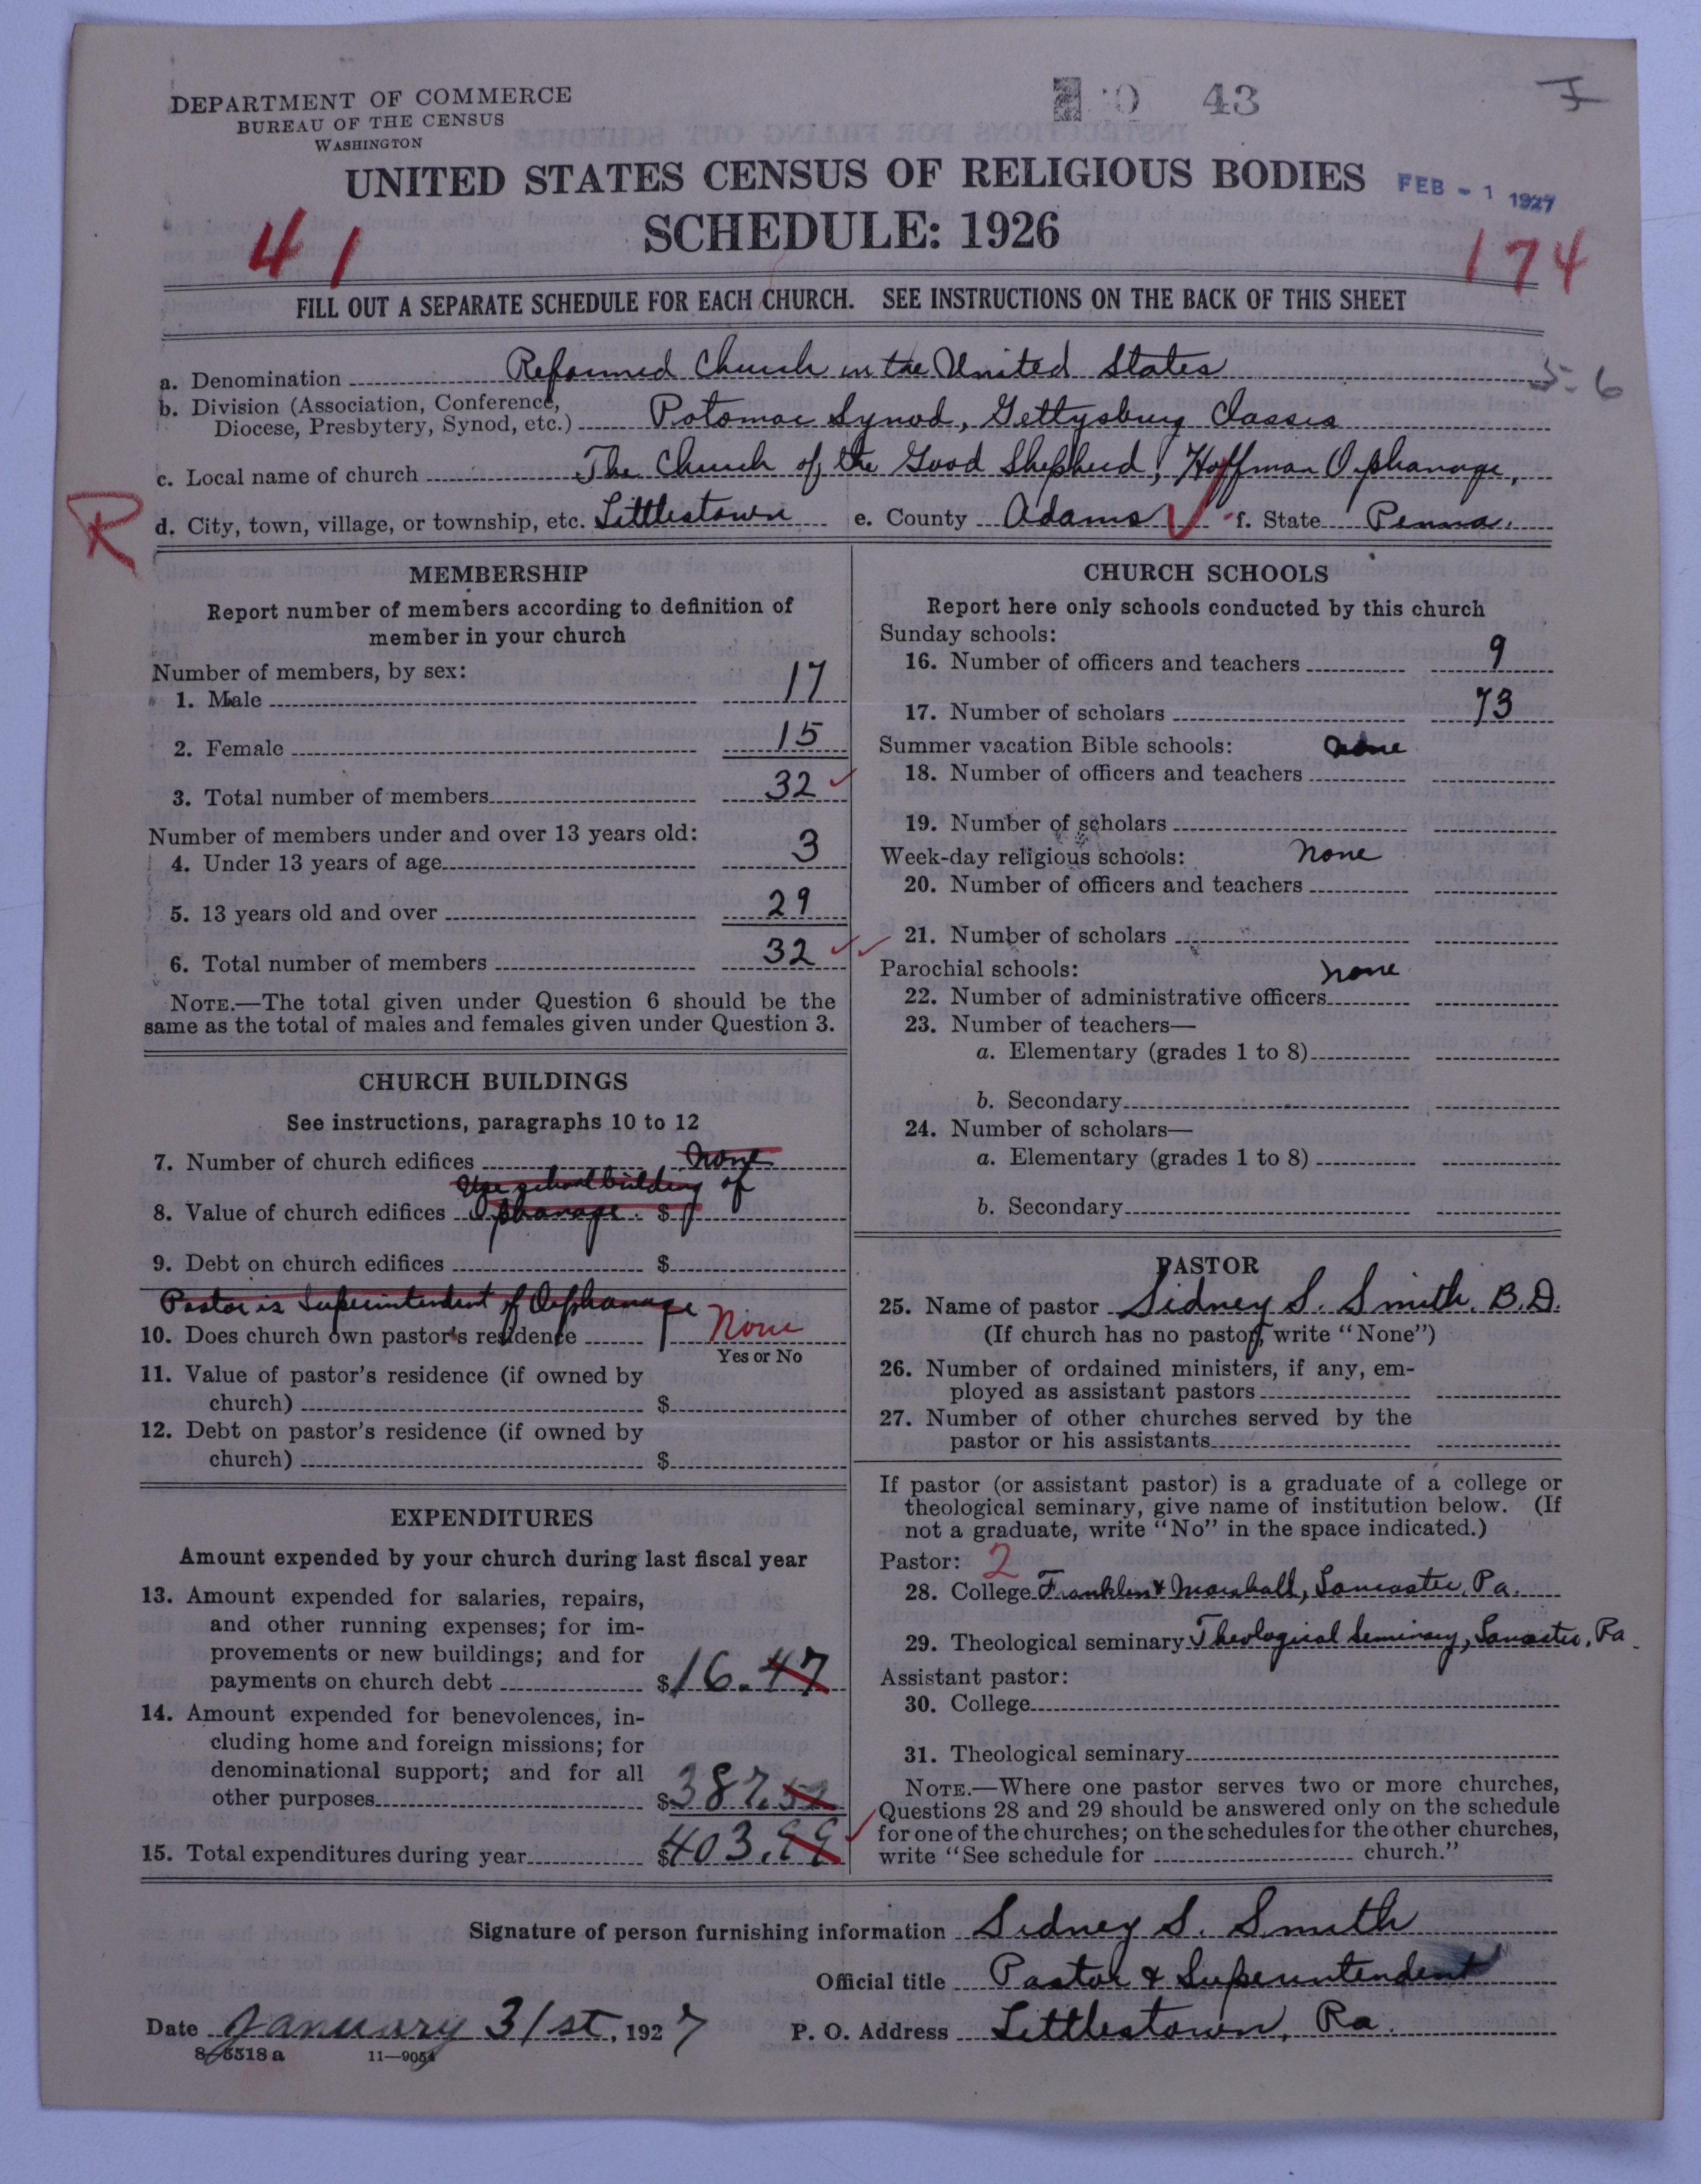 DEPARTMENT OF COMMERCE
BUREAU OF THE CENSUS
WASHINGTON
43
UNITED STATES CENSUS OF RELIGIOUS BODIES
FEB - 1 1927
SCHEDULE: 1926
41
174
FILL OUT A SEPARATE SCHEDULE FOR EACH CHURCH. SEE INSTRUCTIONS ON THE BACK OF THIS SHEET
a. Denomination Reformed Church in the United States
5-6
b. Division (Association, Conference, Diocese, Presbytery, Synod, etc.) Potomac Synod, Gettysburg Classis
c. Local name of church The Church of the Good Shepherd, Hoffman Orphanage,
R
d. City, town, village, or township, etc. Littlestown e. County Adams f. State Penna.
MEMBERSHIP
Report number of members according to definition of
member in your church
Number of members, by sex:
1. Male 17
2. Female 15
3. Total number of members 32
Number of members under and over 13 years old:
4. Under 13 years of age 3
5. 13 years old and over 29
6. Total number of members 32
NOTE.—The total given under Question 6 should be the
same as the total of males and females given under Question 3.
CHURCH BUILDINGS
See instructions, paragraphs 10 to 12
7. Number of church edifices None
Use school building of
8. Value of church edifices Orphanage. $
9. Debt on church edifices $
Pastor is Superintendent of Orphanage
10. Does church own pastor's residence None
Yes or No
11. Value of pastor's residence (if owned by
church) $
12. Debt on pastor's residence (if owned by
church) $
EXPENDITURES
Amount expended by your church during last fiscal year
13. Amount expended for salaries, repairs,
and other running expenses; for im-
provements or new buildings; and for
payments on church debt $16.47
14. Amount expended for benevolences, in-
cluding home and foreign missions; for
denominational support; and for all
other purposes $387.52
15. Total expenditures during year $403.99
CHURCH SCHOOLS
Report here only schools conducted by this church
Sunday schools:
16. Number of officers and teachers 9
17. Number of scholars 73
Summer vacation Bible schools: None
18. Number of officers and teachers
19. Number of scholars
Week-day religious schools: none
20. Number of officers and teachers
21. Number of scholars
Parochial schools: none
22. Number of administrative officers
23. Number of teachers—
a. Elementary (grades 1 to 8)
b. Secondary
24. Number of scholars—
a. Elementary (grades 1 to 8)
b. Secondary
PASTOR
25. Name of pastor Sidney S. Smith, B.D.
(If church has no pastor, write "None")
26. Number of ordained ministers, if any, em-
ployed as assistant pastors
27. Number of other churches served by the
pastor or his assistants
If pastor (or assistant pastor) is a graduate of a college or
theological seminary, give name of institution below. (If
not a graduate, write "No" in the space indicated.)
Pastor: 2
28. College Franklin & Marshall, Lancaster, Pa.
29. Theological seminary Theological Seminary, Lancaster, Pa.
Assistant pastor:
30. College
31. Theological seminary
NOTE.—Where one pastor serves two or more churches,
Questions 28 and 29 should be answered only on the schedule
for one of the churches; on the schedules for the other churches,
write "See schedule for church."
Signature of person furnishing information Sidney S. Smith
Official title Pastor & Superintendent
Date January 31st, 1927 P. O. Address Littlestown, Pa.
8-5518 a 11—9054